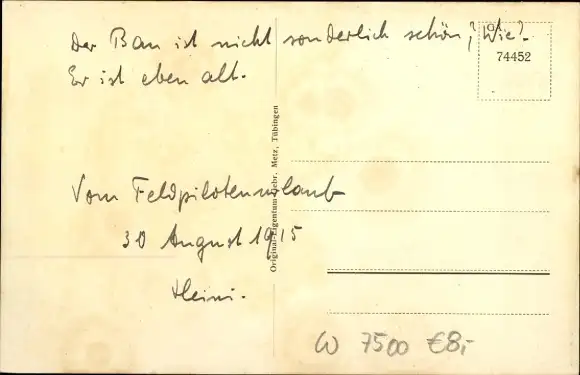 Der Bau ist nicht sonderlich schön, Wie?
Er ist eben alt.
74452
Original-Eigentum Gebr. Metz, Tübingen
Vom Feldpilotenurlaub
30 August 1915
Heini.
W 7500 €8,-